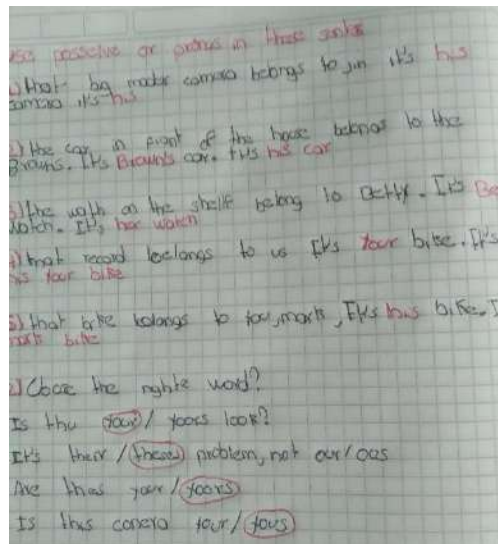 use possesive or pronus in these
1) that big camera belongs to Jim it's his
camera it's his
2) the car in front of the house belongs to the
Browns. It's Brown's car. it's his car
3) the on the shelf belong to Betty. It's Be
watch. It's her watch
4) that record belongs to us It's Your bike. It's
is your bike
5) that bike belongs to you, mark, It's his bike. I
mark bike
the righte word?
Is thu your / yoors look?
It's their / theirs problem, not our / ous
Are thas your / yoors
Is this camera your / yous